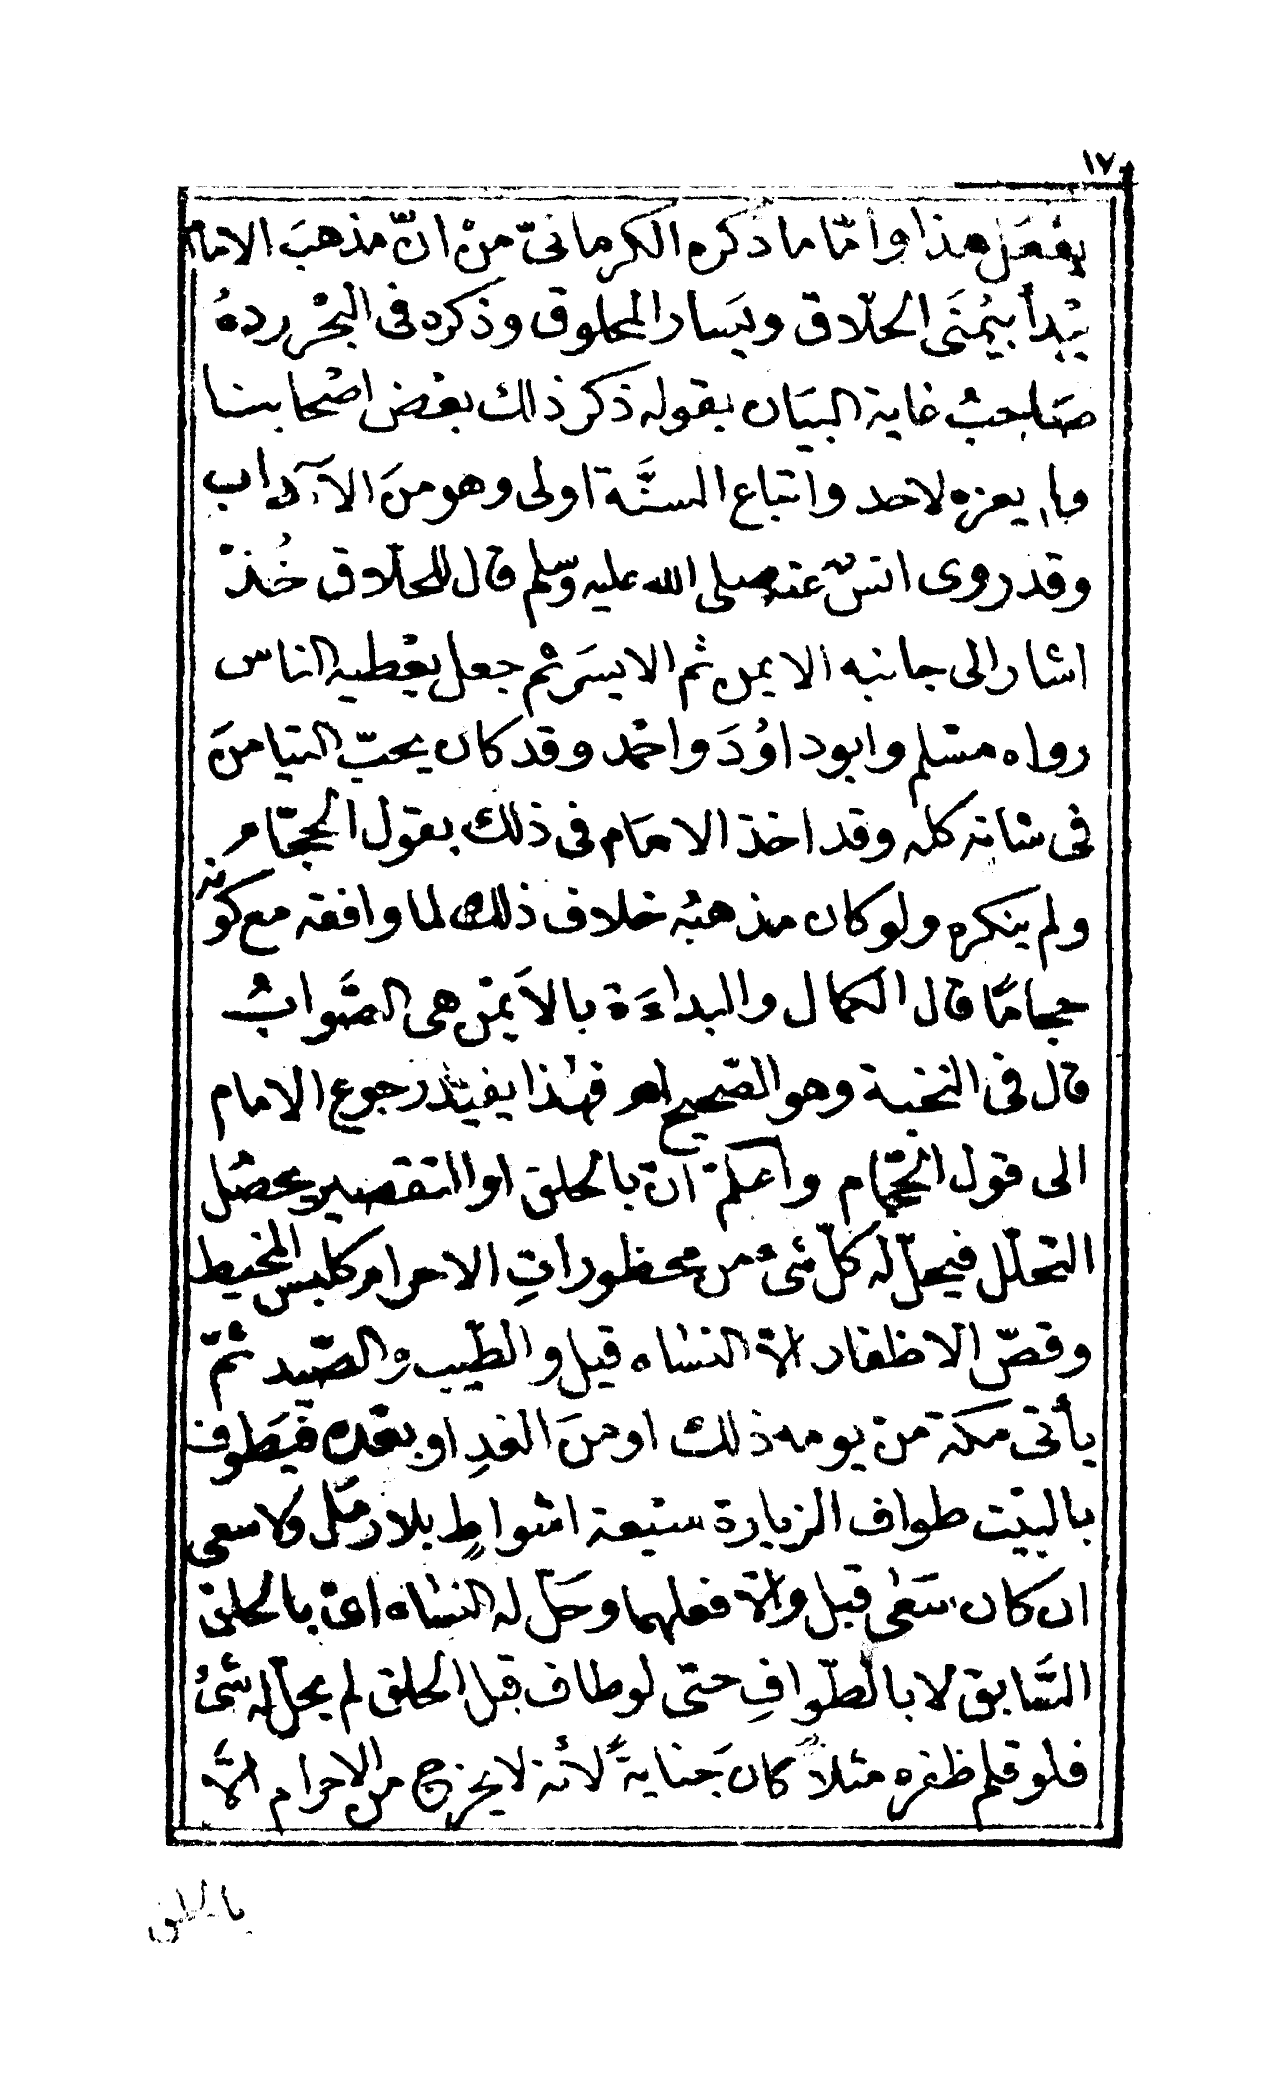 ١٧
يفعل هذا وأمّا ما ذكره الكرمانىّ من انّ مذهب الامام
يبدأ بيُمنَى الحلّاق ويَسار المحلوق وذكره فى البحر ردهُ
صَاحبُ غاية البيَان بقوله ذكر ذلك بعض اصحابنا
ولم يعزه لاحد واتباع السنَّة اولى وهو منَ الآداب
وقد روى انس عنه صلى الله عليه وسلم قال للحلّاق خُذ
اشار الى جانبه الايمن ثم الايسَر ثم جعل يعطيه الناس
رواه مسلم وابو داوُدَ واحمد وقد كان يحبّ التيامنَ
فى شانه كله وقد اخذ الامَام فى ذلك بقول الحجّام
ولم ينكره ولو كان مذهبُه خلاف ذلك لما وافقه مع كونه
حجامًا قال الكمال والبداءَة بالاَيمن هى الصَّوابُ
قال فى النخبة وهو الصّحيح اهـ فهٰذا يفيد رجوع الامام
الى قول الحجّام واعلم انّ بالحلق او التقصير يحصُل
التحلّل فيحلّ له كلّ شىء من محظوراتِ الاحرام كلبس المخيط
وقصّ الاظفار الاّ النسَاء قيل والطّيب والصّيد ثمّ
يأتى مكة من يومه ذلك او منَ الغدِ او بعده فيَطوف
بالبيت طواف الزيارة سبعة اشواطٍ بلا رمَل ولا سعى
ان كان سَعٰى قبل والاّ فعلهما وحَلّ له النسَاء اى بالحلق
السَّابق لا بالطّوافِ حتى لو طاف قبل الحلق لم يحلّ له شىءُ
فلو قلم ظفره مثلاً كانَ جنايةً لانّه لا يخرج من الاحرام الاّ
بالحلق